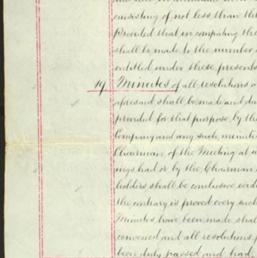 consisting of not less than
Provided that in computing the
shall be made to the number
entitled under these presents
19 Minutes of all resolutions
aforesaid shall be made and
provided for that purpose by the
Company and any such
Chairman of the Meeting at
ings had or by the Chairman
holders shall be conclusive
the contrary is proved every such
Minutes have been made shall
convened and all resolutions
been duly passed and had